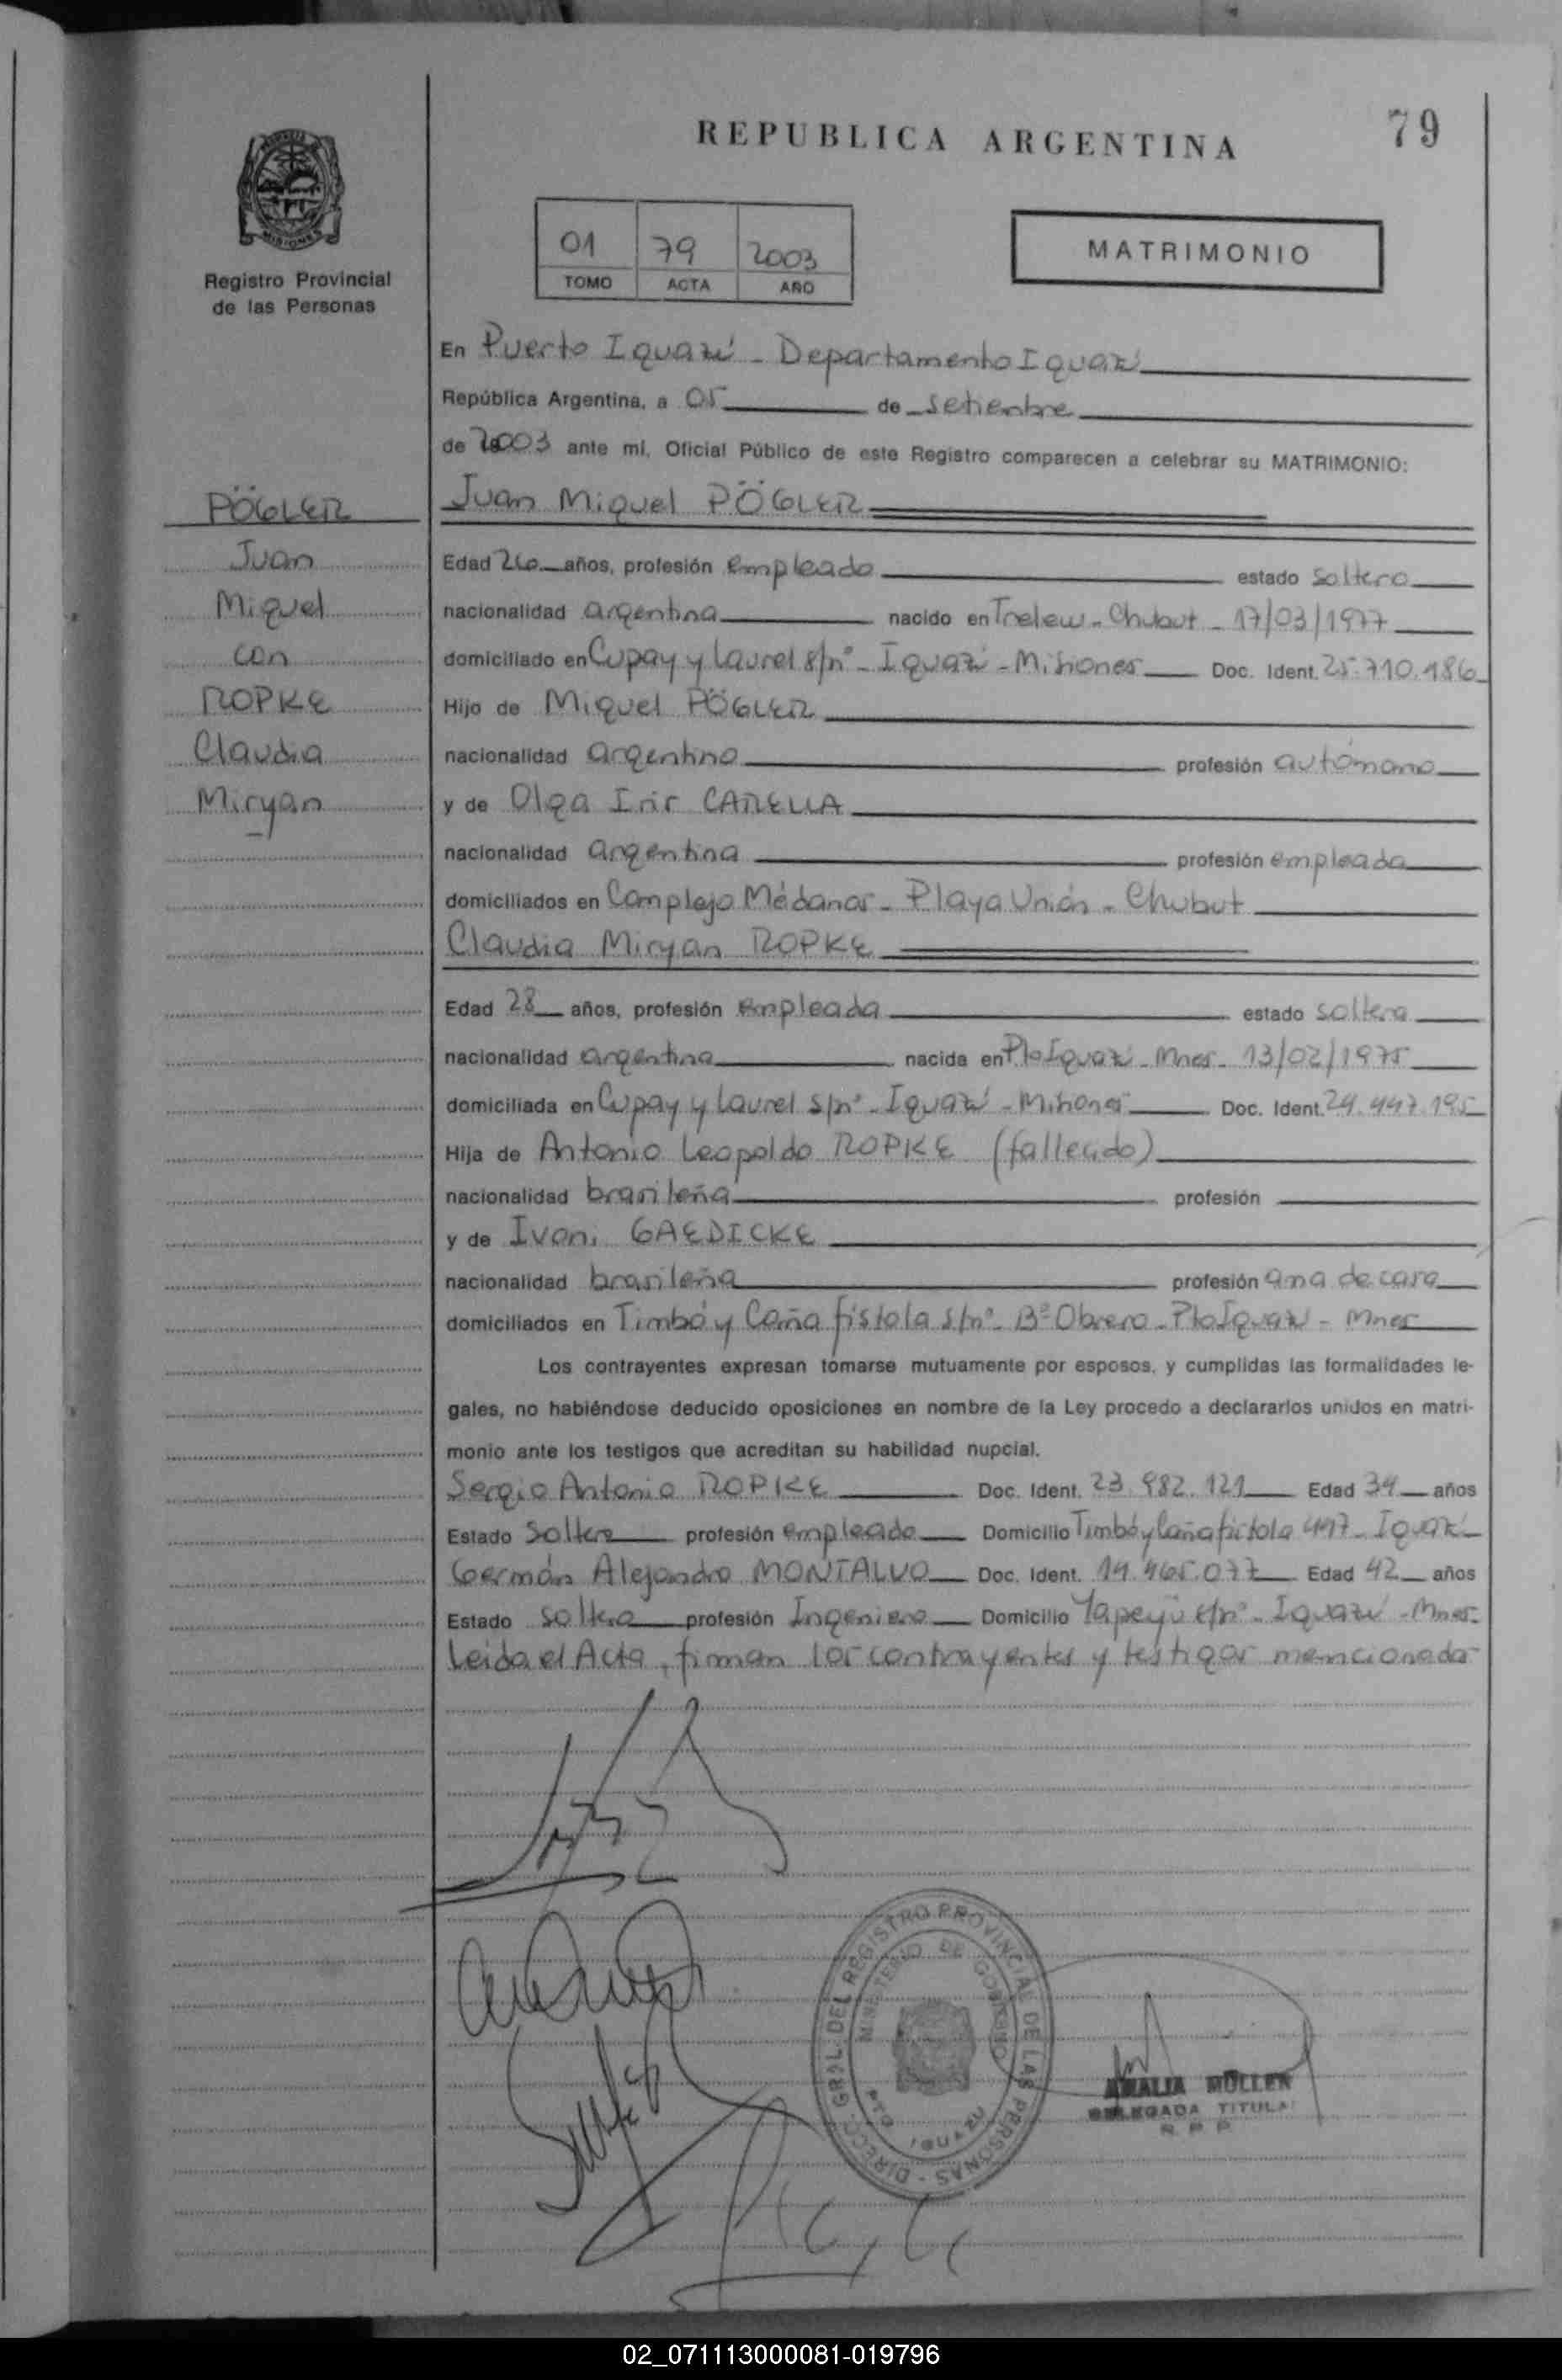 REPUBLICA ARGENTINA
79
MISIONES
Registro Provincial
de las Personas
01 79 2003
TOMO ACTA AÑO
MATRIMONIO
En Puerto Iguazú - Departamento Iguazú
República Argentina, a 05 de setiembre
de 2003 ante mí, Oficial Público de este Registro comparecen a celebrar su MATRIMONIO:
PÖGLER
Juan
Miguel
con
ROPKE
Claudia
Miryan
Juan Miguel PÖGLER
Edad 26 años, profesión empleado estado soltero
nacionalidad argentina nacido en Trelew - Chubut - 17/03/1977
domiciliado en Cupay y Laurel s/nº - Iguazú - Misiones Doc. Ident. 25.710.186
Hijo de Miguel PÖGLER
nacionalidad argentina profesión autónomo
y de Olga Iris CARELLA
nacionalidad argentina profesión empleada
domiciliados en Complejo Médanos - Playa Unión - Chubut
Claudia Miryan ROPKE
Edad 28 años, profesión empleada estado soltera
nacionalidad argentina nacida en Pto Iguazú - Mnes - 13/02/1975
domiciliada en Cupay y Laurel s/nº - Iguazú - Misiones Doc. Ident. 24.447.195
Hija de Antonio Leopoldo ROPKE (fallecido)
nacionalidad brasileña profesión
y de Ivoni GAEDICKE
nacionalidad brasileña profesión ama de casa
domiciliados en Timbó y Caña fístola s/nº - Bº Obrero - Pto Iguazú - Mnes
Los contrayentes expresan tomarse mutuamente por esposos, y cumplidas las formalidades le-
gales, no habiéndose deducido oposiciones en nombre de la Ley procedo a declararlos unidos en matri-
monio ante los testigos que acreditan su habilidad nupcial.
Sergio Antonio ROPKE Doc. Ident. 23.982.121 Edad 34 años
Estado soltero profesión empleado Domicilio Timbó y Caña fístola 497 - Iguazú
Germán Alejandro MONTALVO Doc. Ident. 14.465.077 Edad 42 años
Estado soltero profesión Ingeniero Domicilio Yapeyú s/nº - Iguazú - Mnes
Leída el Acta, firman los contrayentes y testigos mencionados
DIRECC. GRAL. DEL REGISTRO PROVINCIAL DE LAS PERSONAS -
MINISTERIO DE GOBIERNO
PTO. IGUAZU
AMALIA MÜLLER
DELEGADA TITULAR
R P P
02_071113000081-019796